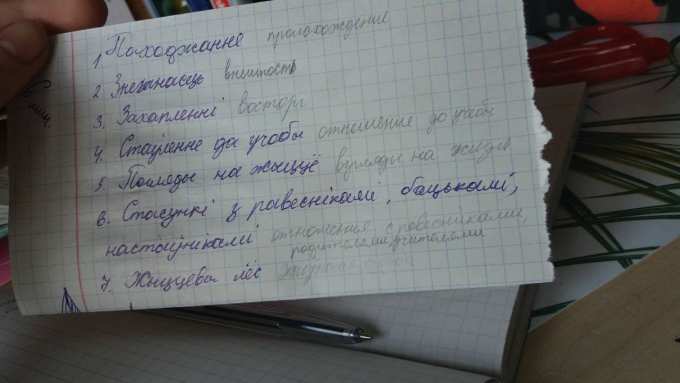 1, Паходжанне происхождение
2. Знешнасць внешность
3. Захапленні восторг
4. Стаўленне да учобы отношение до учобы
5. Погляды на жыццё взгляды на жизнь
6. Стасункі з равеснікамі, бацькамі,
настаўнікамі отношения с ровесниками,
родителями, учителями
7. Жыццёвы лёс